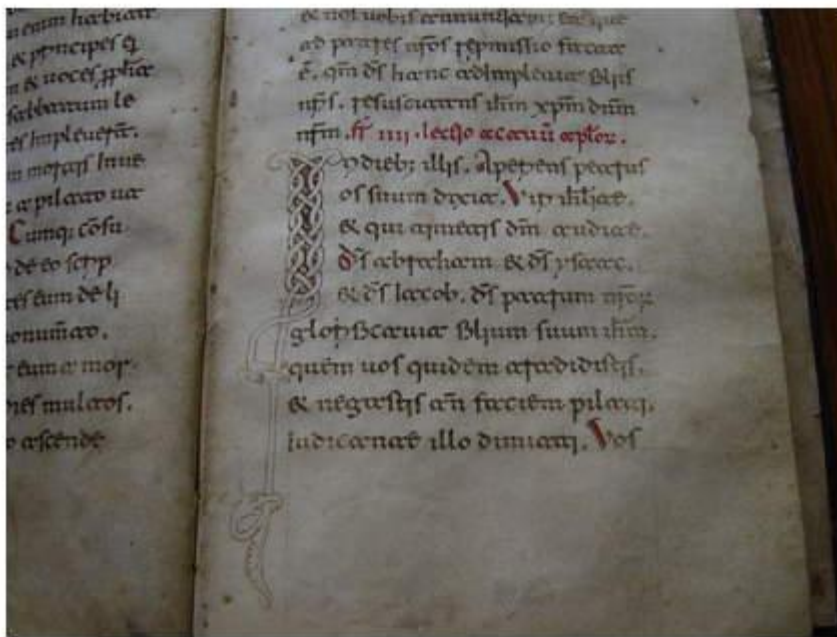 & principes q
& uoces pphae
sabbatum le
impleuer̄.
mortis inue
a pilato ut
Cumq; cōsu
de eo scrip
eum de li
onumēto.
eum a mor
dies multos.
ascende
& nos uobis
ad patres nr̄os repmissio facta
ē. qm̄ ds̄ hanc adimpleuit filiis
nr̄is. resuscitans ihm̄ xp̄m dn̄m
nr̄m. fr̄ iiii. lectio actuū aplor.
In dieb; illis. Aperiens petrus
os suum dixit. Viri isrl̄ite.
& qui timetis dm̄ audite.
ds̄ abraham & ds̄ ysaac.
& ds̄ iacob. ds̄ patrum nr̄or
glorificauit filium suum ihm̄.
quem uos quidem tradidistis.
& negastis an̄ faciem pilati.
iudicante illo dimitti. Vos